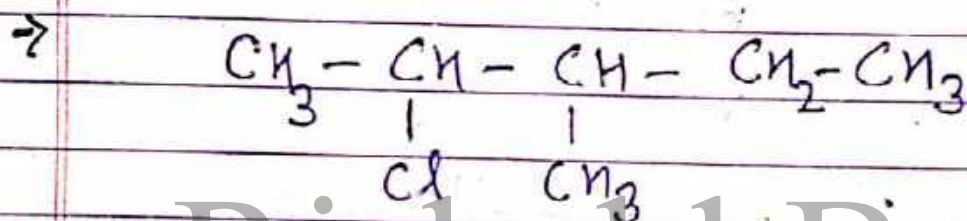 → CH3 – CH – CH – CH2–CH3
| |
Cl CH3